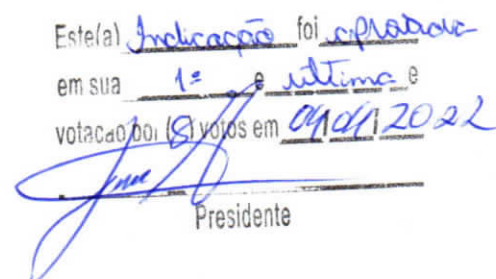 Este(a) Indicação foi aprovada
em sua 1ª e última e
votação por (8) votos em 04/04/2022
Presidente